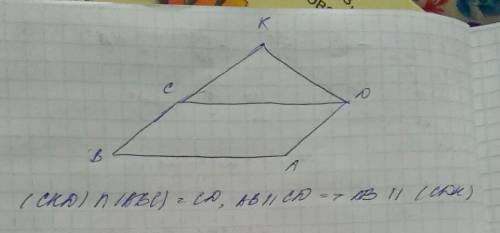 K
C
D
B
A
(CKD) ∩ (ABC) = CD, AB || CD => AB || (CDK)